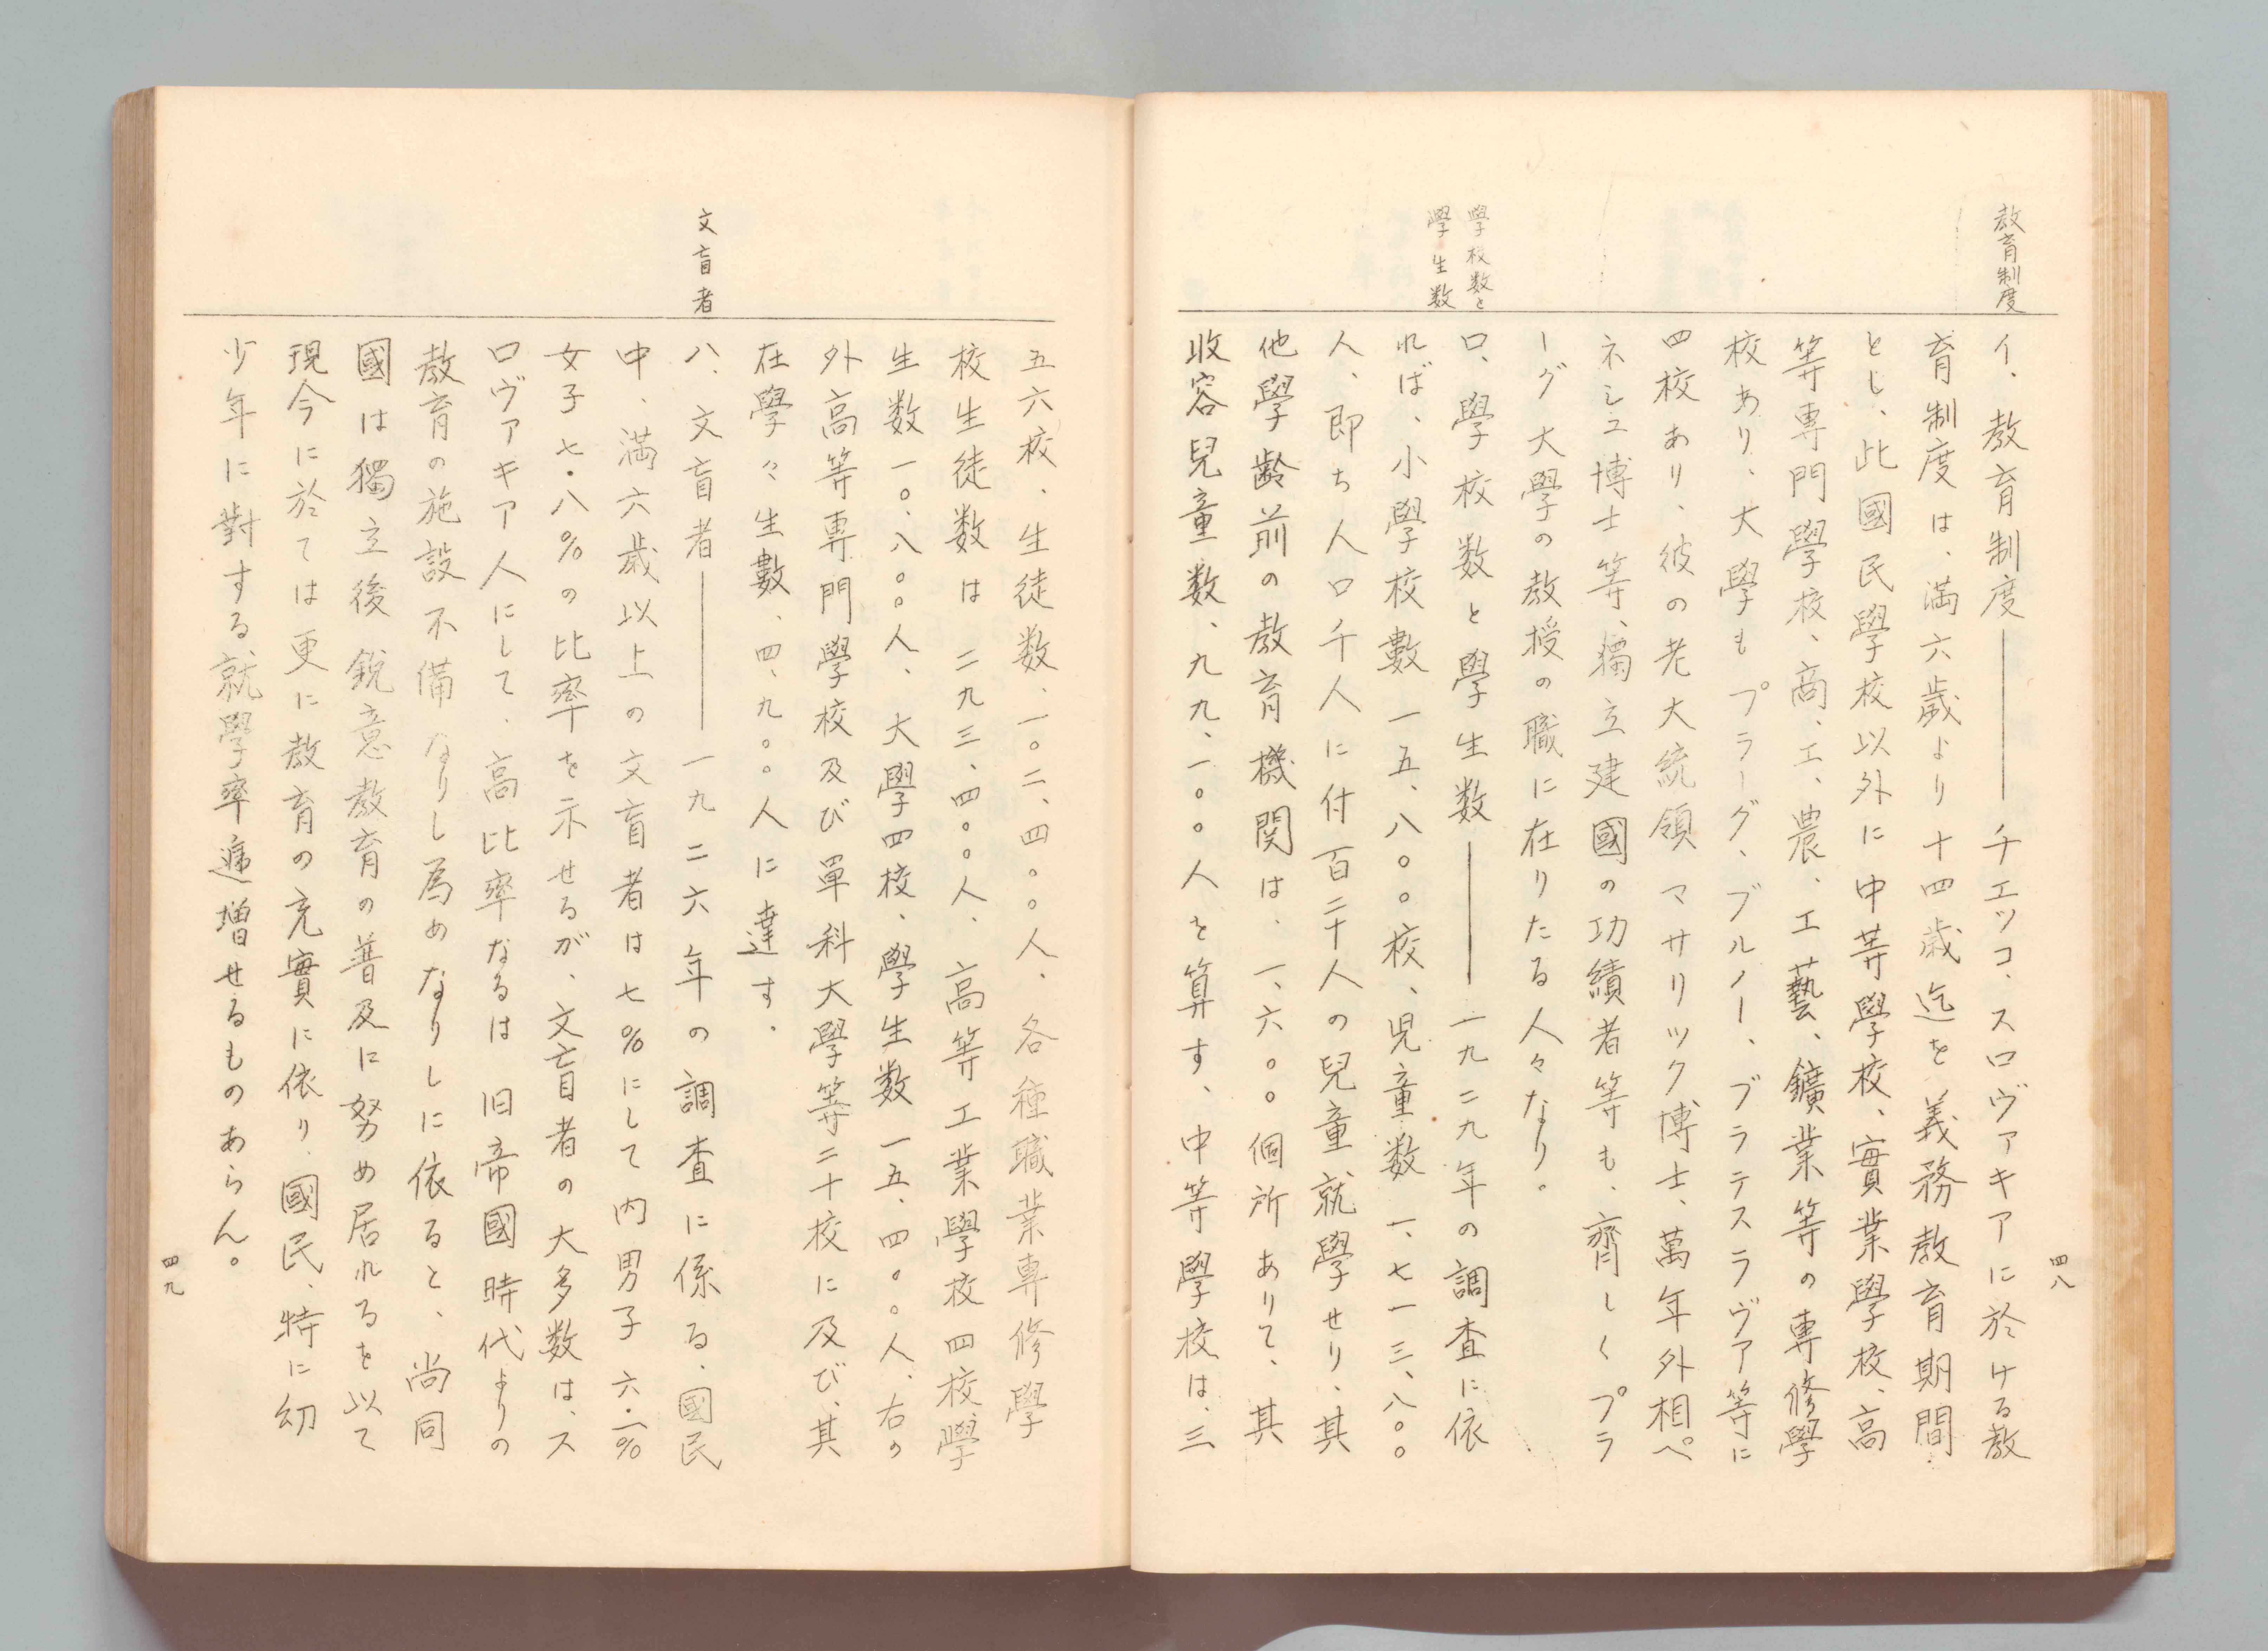 教育制度
イ、教育制度――チエッコ、スロヴァキアに於ける教
育制度は、満六歳より十四歳迄を義務教育期間
とし、此國民學校以外に中等學校、實業學校、高
等専門學校、商、工、農、工藝、鑛業等の専修學
校あり、大學もプラーグ、ブルノー、ブラテスラヴァ等に
四校あり、彼の老大統領マサリック博士、萬年外相ベ
ネシュ博士等、獨立建國の功績者等も、齊しくプラ
ーグ大學の教授の職に在りたる人々なり。
學校数と
學生数
ロ、學校数と學生数――一九二九年の調査に依
れば、小學校數一五、八〇〇校、児童数一、七一三、八〇〇
人、即ち人口千人に付百二十人の兒童就學せり、其
他學齢前の教育機関は、一、六〇〇個所ありて、其
收容兒童数、九九、一〇〇人を算す、中等學校は、三
四八
五六校、生徒数、一〇二、四〇〇人、各種職業専修學
校生徒数は二九三、四〇〇人、高等工業學校四校、學
生数一〇、八〇〇人、大學四校、學生数一五、四〇〇人、右の
外高等専門學校及び單科大學等二十校に及び、其
在學々生數、四、九〇〇人に達す。
文盲者
ハ、文盲者――一九二六年の調査に係る、國民
中、満六歳以上の文盲者は七%にして内男子六・一%
女子七・八%の比率を示せるが、文盲者の大多数は、ス
ロヴァキア人にして、高比率なるは旧帝國時代よりの
教育の施設不備なりし為めなりしに依ると、尚同
國は獨立後鋭意教育の普及に努め居れるを以て
現今に於ては更に教育の充實に依り、國民、特に幼
少年に對する就學率逓増せるものあらん。
四九